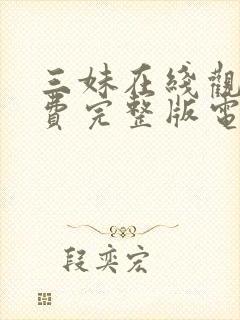 三妹在綫觀
費完整版電
段奕宏